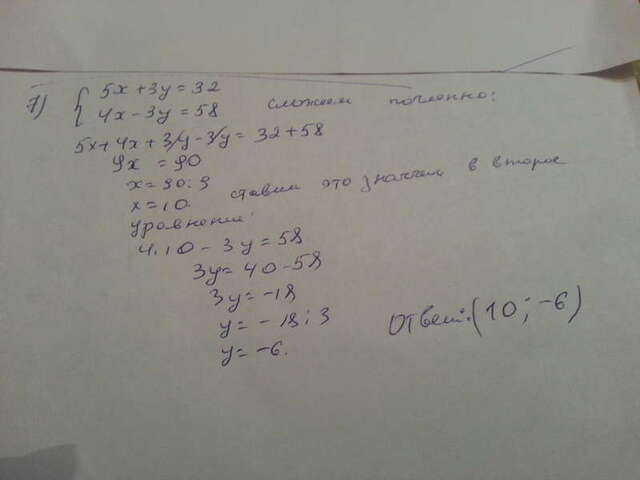 7) { 5x + 3y = 32
4x - 3y = 58 сложим почленно:
5x + 4x + 3y - 3y = 32 + 58
9x = 90
x = 90 : 9
x = 10. ставим это значение в второе
уравнение:
4 · 10 - 3y = 58
3y = 40 - 58
3y = -18
y = -18 : 3
y = -6.
Ответ: (10 ; -6)